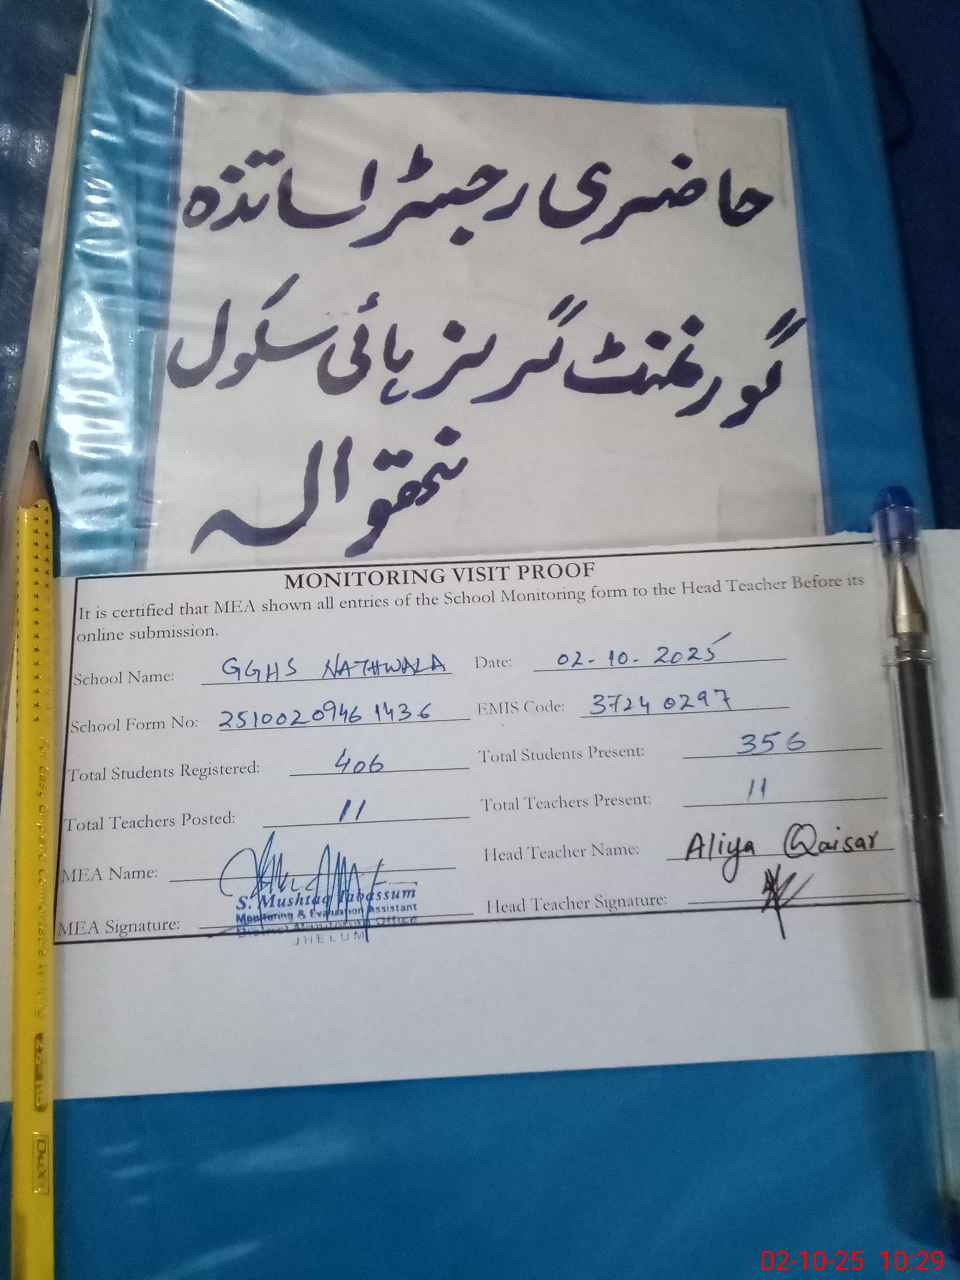 حاضری رجسٹر اساتذہ
گورنمنٹ گرلز ہائی سکول
نتھوالہ
MONITORING VISIT PROOF
It is certified that MEA shown all entries of the School Monitoring form to the Head Teacher Before its
online submission.
School Name: GGHS NATHWALA Date: 02-10-2025
School Form No: 25100209461436 EMIS Code: 37240297
Total Students Registered: 406 Total Students Present: 356
Total Teachers Posted: 11 Total Teachers Present: 11
MEA Name: Head Teacher Name: Aliya Qaisar
S. Mushtaq Tabassum
Monitoring & Evaluation Assistant
District Monitoring Office
JHELUM
MEA Signature: Head Teacher Signature:
02-10-25 10:29